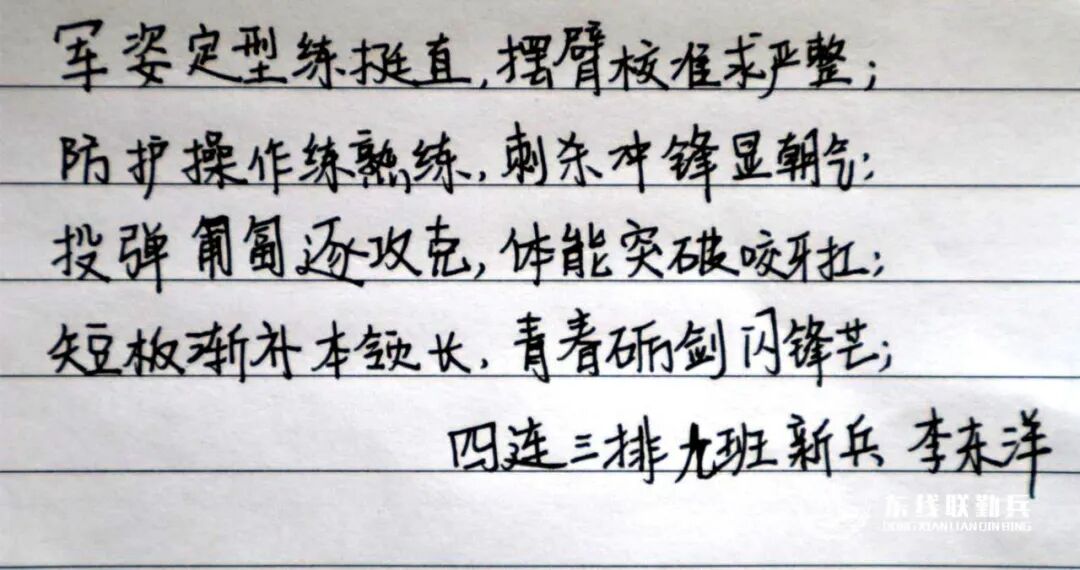 军姿定型练挺直,摆臂校准求严整;
防护操作练熟练,刺杀冲锋显朝气;
投弹匍匐逐攻克,体能突破咬牙扛;
短板渐补本领长,青春砺剑闪锋芒;
四连三排九班新兵 李东洋
东线联勤兵
DONGXIANLIANQINBING